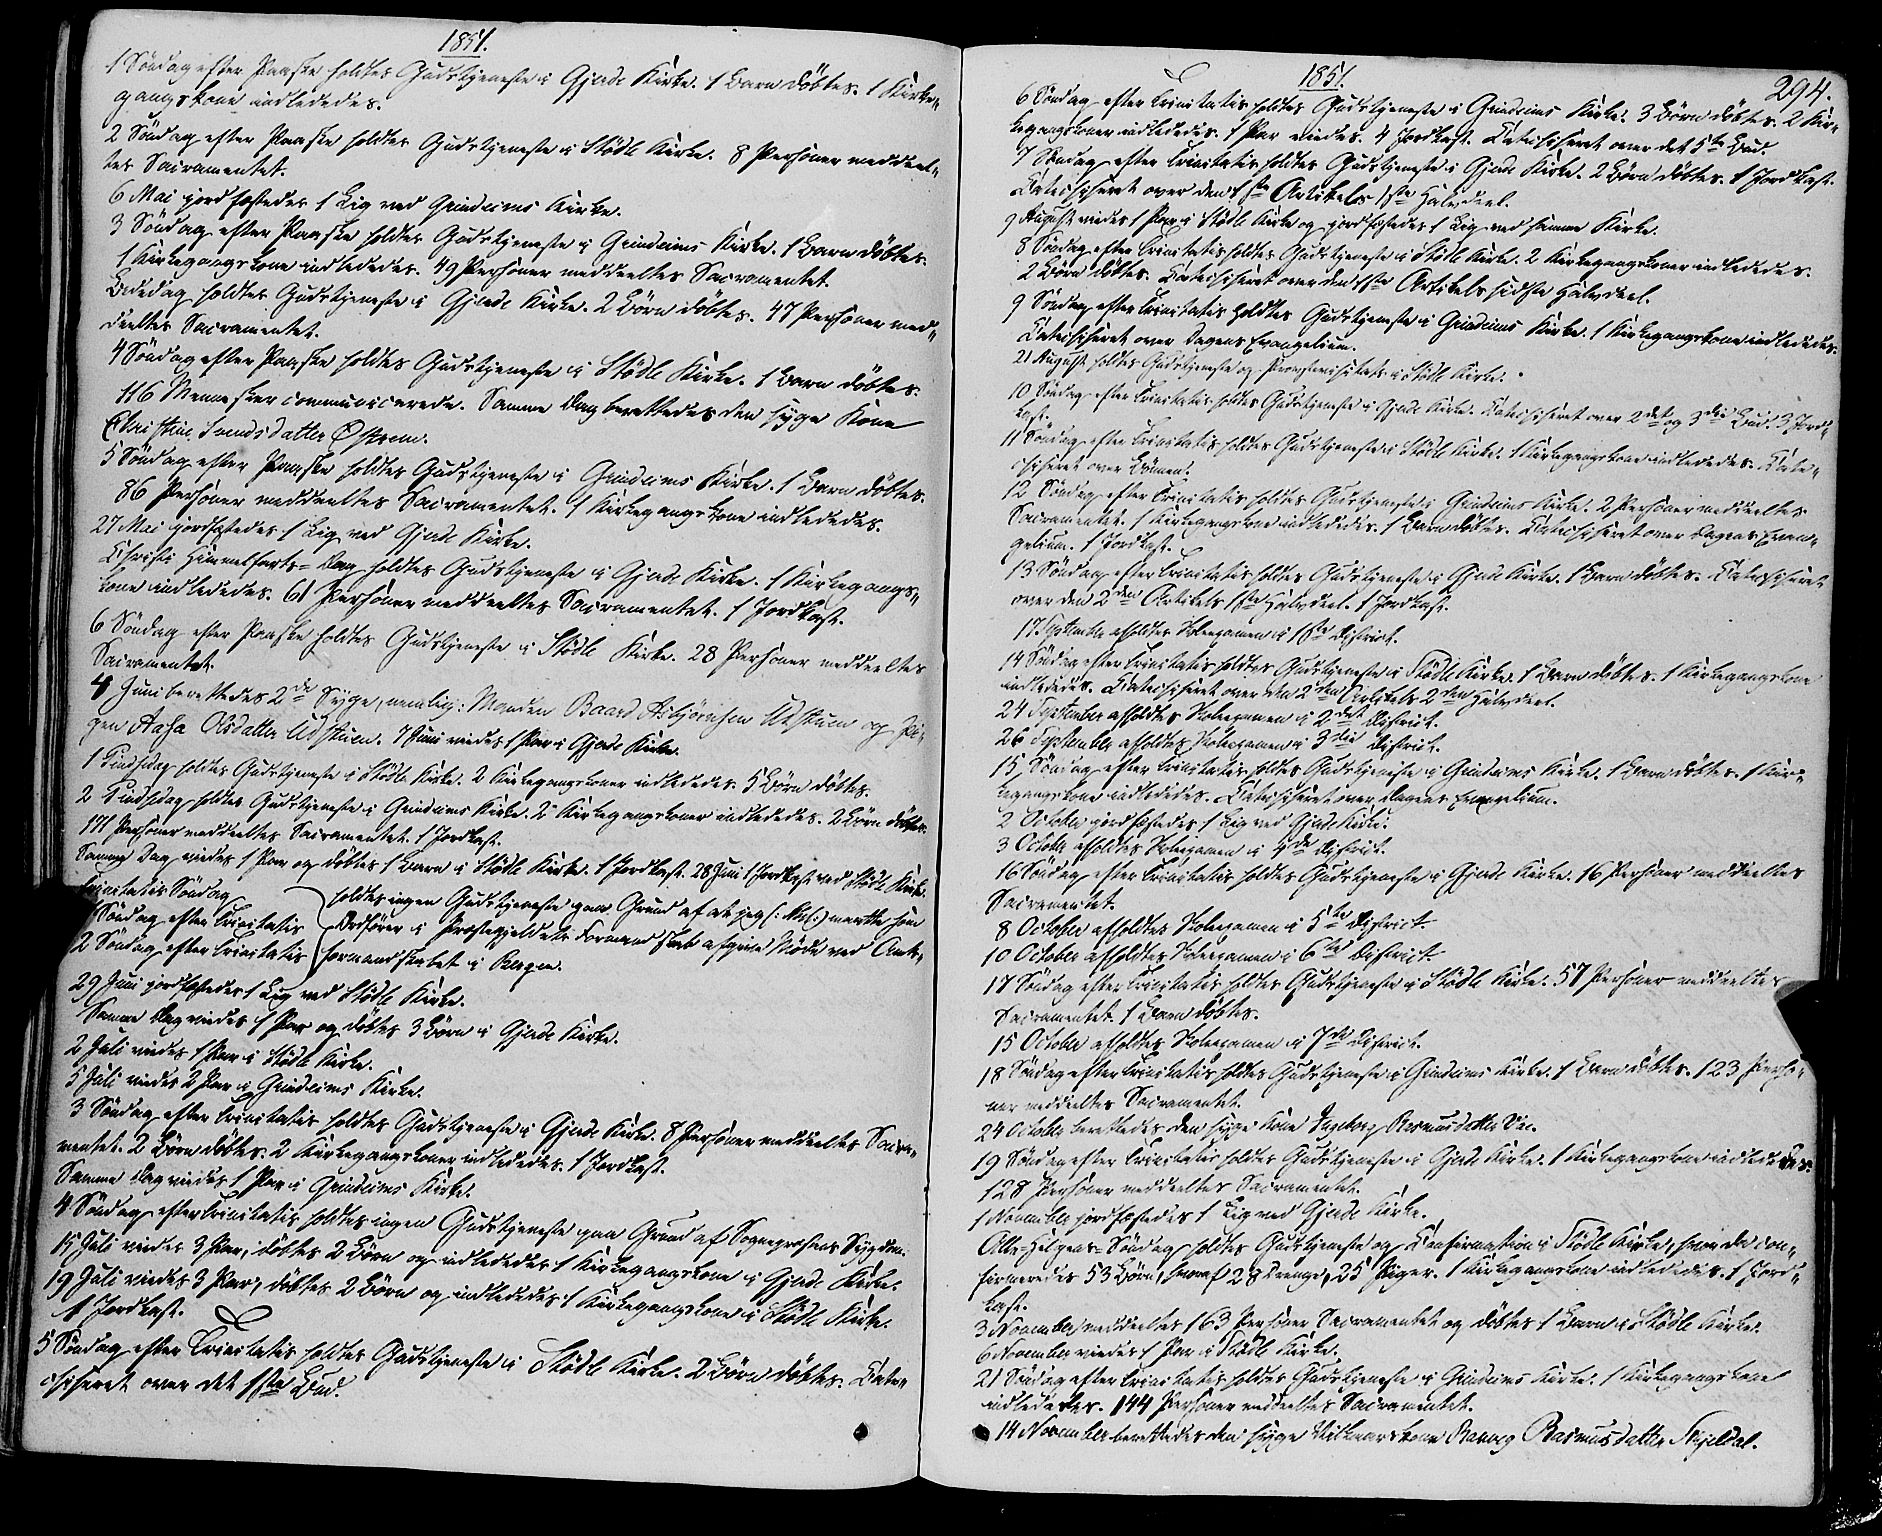 1851.
1 Söndag efter Paaske holdtes Gudstjeneste i Gjerde Kirke. 1 Barn döbtes. 1 Kirke„
gangskone indlededes.
2 Söndag efter Paaske holdtes Gudstjeneste i Stödle Kirke. 8 Personer meddeel„
tes Sacramentet.
6 Mai jordfæstedes 1 Lig ved Grindeims Kirke.
3 Söndag efter Paaske holdtes Gudstjeneste i Grindeims Kirke. 1 Barn döbtes.
1 Kirkegangskone indlededes. 49 Personer meddeeltes Sacramentet.
Bededag holdtes Gudstjeneste i Gjerde Kirke. 2 Börn döbtes. 47 Personer med„
deeltes Sacramentet.
4 Söndag efter Paaske holdtes Gudstjeneste i Stödle Kirke. 1 Barn döbtes.
116 Mennesker communicerede. Samme Dag berettedes den syge Kone
Christine Svendsdatter Østrem.
5 Söndag efter Paaske holdtes Gudstjeneste i Grindeims Kirke. 1 Barn döbtes.
86 Personer meddeeltes Sacramentet. 1 Kirkegangskone indlededes.
27 Mai jordfæstedes 1 Lig ved Gjerde Kirke.
Christi Himmelfarts-Dag holdtes Gudstjeneste i Gjerde Kirke. 1 Kirkegangs„
kone indlededes. 61 Personer meddeeltes Sacramentet. 1 Jordkast.
6 Söndag efter Paaske holdtes Gudstjeneste i Stödle Kirke. 28 Personer meddeeltes
Sacramentet.
4 Juni berettedes 2de Syge, nemlig: Manden Baard Asbjörnsen Utstuen og Pi„
gen Aasa Olsdatter Udstuen. 7 Juni viedes 1 Par i Gjerde Kirke.
1 Pindsdag holdtes Gudstjeneste i Stödle Kirke. 2 Kirkegangskoner indlededes. 5 Börn döbtes.
2 Pindsdag holdtes Gudstjeneste i Grindeims Kirke. 2 Kirkegangskoner indlededes. 2 Börn döbtes.
171 Personer meddeeltes Sacramentet. 1 Jordkast.
Samme Dag viedes 1 Par og döbtes 1 Barn i Stödle Kirke. 1 Jordkast. 28 Juni 1 Jordkast ved Stödle Kirke.
Trinitatis Söndag
1 Söndag efter Trinitatis
2 Söndag efter Trinitatis
holdtes ingen Gudstjeneste paa Grund af at jeg maatte som
Ordförer i Præstegjeldets Formandskab afgive Möde ved Amts„
formandskabet i Bergen.
29 Juni jordfæstedes 1 Lig ved Stödle Kirke.
Samme Dag viedes 1 Par og döbtes 3 Börn i Gjerde Kirke.
2 Juli viedes 1 Par i Stödle Kirke.
5 Juli viedes 2 Par i Grindeims Kirke.
3 Söndag efter Trinitatis holdtes Gudstjeneste i Gjerde Kirke. 8 Personer meddeeltes Sacra„
mentet. 2 Börn döbtes. 2 Kirkegangskoner indlededes. 1 Jordkast.
Samme Dag viedes 1 Par i Grindeims Kirke.
4 Söndag efter Trinitatis holdtes ingen Gudstjeneste paa Grund af Sognepræstens Sygdom.
15 Juli viedes 3 Par, döbtes 2 Börn og indlededes 1 Kirkegangskone i Gjerde Kirke.
19 Juli viedes 3 Par, döbtes 2 Börn og indlededes 1 Kirkegangskone i Stödle Kirke.
1 Jordkast.
5 Söndag efter Trinitatis holdtes Gudstjeneste i Stödle Kirke. 2 Börn döbtes. Cate„
chiseret over det 1ste Bud.
1851.
294.
6 Söndag efter Trinitatis holdtes Gudstjeneste i Grindeims Kirke. 3 Börn döbtes. 2 Kir„
kegangskoner indlededes. 1 Par viedes. 4 Jordkast. Catechiseret over det 5te Bud.
7 Söndag efter Trinitatis holdtes Gudstjeneste i Gjerde Kirke. 2 Börn döbtes. 1 Jordkast.
Catechiseret over den 1ste Artikels 1ste Halvdeel.
9 August viedes 1 Par i Stödle Kirke og jordfæstedes 1 Lig ved samme Kirke.
8 Söndag efter Trinitatis holdtes Gudstjeneste i Stödle Kirke. 2 Kirkegangskoner indlededes.
2 Börn döbtes. Catechiseret over den 1ste Artikels sidste Halvdeel.
9 Söndag efter Trinitatis holdtes Gudstjeneste i Grindeims Kirke. 1 Kirkegangskone indlededes.
Catechiseret over Dagens Evangelium.
21 August holdtes Gudstjeneste og Provstevisitats i Stödle Kirke.
10 Söndag efter Trinitatis holdtes Gudstjeneste i Gjerde Kirke. Catechiseret over 2det og 3die Bud. 3 Jord„
kast.
11 Söndag efter Trinitatis holdtes Gudstjeneste i Stödle Kirke. 1 Kirkegangskone indlededes. Cate„
chiseret over Bönnen.
12 Söndag efter Trinitatis holdtes Gudstjeneste i Grindeims Kirke. 2 Personer meddeeltes
Sacramentet. 1 Kirkegangskone indlededes. 1 Barn döbtes. Catechiseret over Dagens Evan„
gelium. 1 Jordkast.
13 Söndag efter Trinitatis holdtes Gudstjeneste i Gjerde Kirke. 1 Barn döbtes. Catechiseret
over den 2den Artikels 1ste Halvdeel. 1 Jordkast.
17 September afholdtes Skoleexamen i 1ste District.
14 Söndag efter Trinitatis holdtes Gudstjeneste i Stödle Kirke. 1 Barn döbtes. 1 Kirkegangskone
indlededes. Catechiseret over den 2den Artikels 2den Halvdeel.
24 September afholdtes Skoleexamen i 2det District.
26 September afholdtes Skoleexamen i 3die District.
15 Söndag efter Trinitatis holdtes Gudstjeneste i Grindeims Kirke. 1 Barn döbtes. 1 Kir„
kegangskone indlededes. Catechiseret over Dagens Evangelium.
2 October jordfæstedes 1 Lig ved Gjerde Kirke.
3 October afholdtes Skoleexamen i 4de District.
16 Söndag efter Trinitatis holdtes Gudstjeneste i Gjerde Kirke. 16 Personer meddeeltes
Sacramentet.
8 October afholdtes Skoleexamen i 5te District.
10 October afholdtes Skoleexamen i 6te District.
17 Söndag efter Trinitatis holdtes Gudstjeneste i Stödle Kirke. 57 Personer meddeeltes
Sacramentet. 1 Barn döbtes.
15 October afholdtes Skoleexamen i 7de District.
18 Söndag efter Trinitatis holdtes Gudstjeneste i Grindeims Kirke. 1 Barn döbtes. 123 Perso„
ner meddeeltes Sacramentet.
24 October berettedes den syge Kone Ingeborg Rasmusdatter Vie.
19 Söndag efter Trinitatis holdtes Gudstjeneste i Gjerde Kirke. 1 Kirkegangskone indlededes.
128 Personer meddeeltes Sacramentet.
1 November jordfæstedes 1 Lig ved Gjerde Kirke.
Alle-Helgens-Söndag holdtes Gudstjeneste og Confirmation i Stödle Kirke, hvor der con„
firmeredes 53 Börn, hvoraf 28 Drenge, 25 Piger. 1 Kirkegangskone indlededes. 1 Jord„
kast.
3 November meddeeltes 163 Personer Sacramentet og döbtes 1 Barn i Stödle Kirke.
6 November viedes 1 Par i Stödle Kirke.
21 Söndag efter Trinitatis holdtes Gudstjeneste i Grindeims Kirke. 1 Kirkegangskone
indlededes. 144 Personer meddeeltes Sacramentet.
14 November berettedes den syge Rasmusdatter Skjeldal.